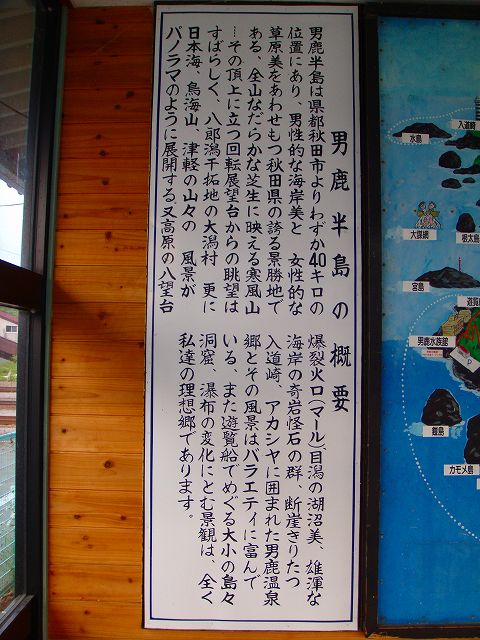 男鹿半島の概要
男鹿半島は県都秋田市よりわずか40キロの
位置にあり、男性的な海岸美と 女性的な
草原美をあわせもつ秋田県の誇る景勝地で
ある、全山なだらかな芝生に映える寒風山
…その頂上に立つ回転展望台からの眺望は
すばらしく、八郎潟干拓地の大潟村 更に
日本海、鳥海山、津軽の山々の 風景が
パノラマのように展開する又高原の八望台
爆裂火口(マール)目潟の湖沼美、雄渾な
海岸の奇岩怪石の群、断崖きりたつ
入道崎、アカシヤに囲まれた男鹿温泉
郷とその風景はバラエティに富んで
いる、また遊覧船でめぐる大小の島々
洞窟、瀑布の変化にとむ景観は、全く
私達の理想郷であります。
水島
入道崎
大謀網
根太島
宮島
男鹿水族館
P
館島
カモメ島